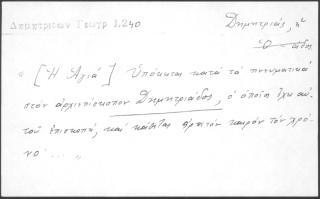 Δημητριεων Γεωγρ 1.240
Δημητριάς, ἡ
Ὁ - άδος
" [Ἡ Ἁγιά] Ὑπόκειται κατά τά πνευματικά
στόν ἀρχιεπίσκοπον Δημητριάδος, ὁ ὁποῖος ἔχει αὐ-
τοῦ ἐπισκοπή, καί κάθεται ἀρκετόν καιρόν τόν χρό-
νο ... "